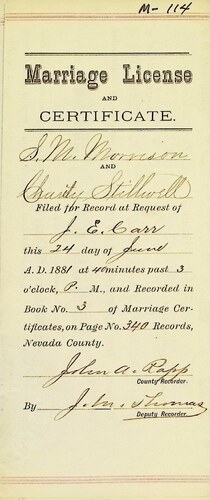 M- 114
Marriage License
AND
CERTIFICATE.
S. M. Morrison
AND
Charity Stillwell
Filed for Record at Request of
J. E. Carr
this 24 day of June
A. D. 1881 at 40 minutes past 3
o'clock, P. M., and Recorded in
Book No. 3 of Marriage Cer-
tificates, on Page No. 340 Records,
Nevada County.
John A. Rapp
County Recorder.
By J. M. Thomas
Deputy Recorder.